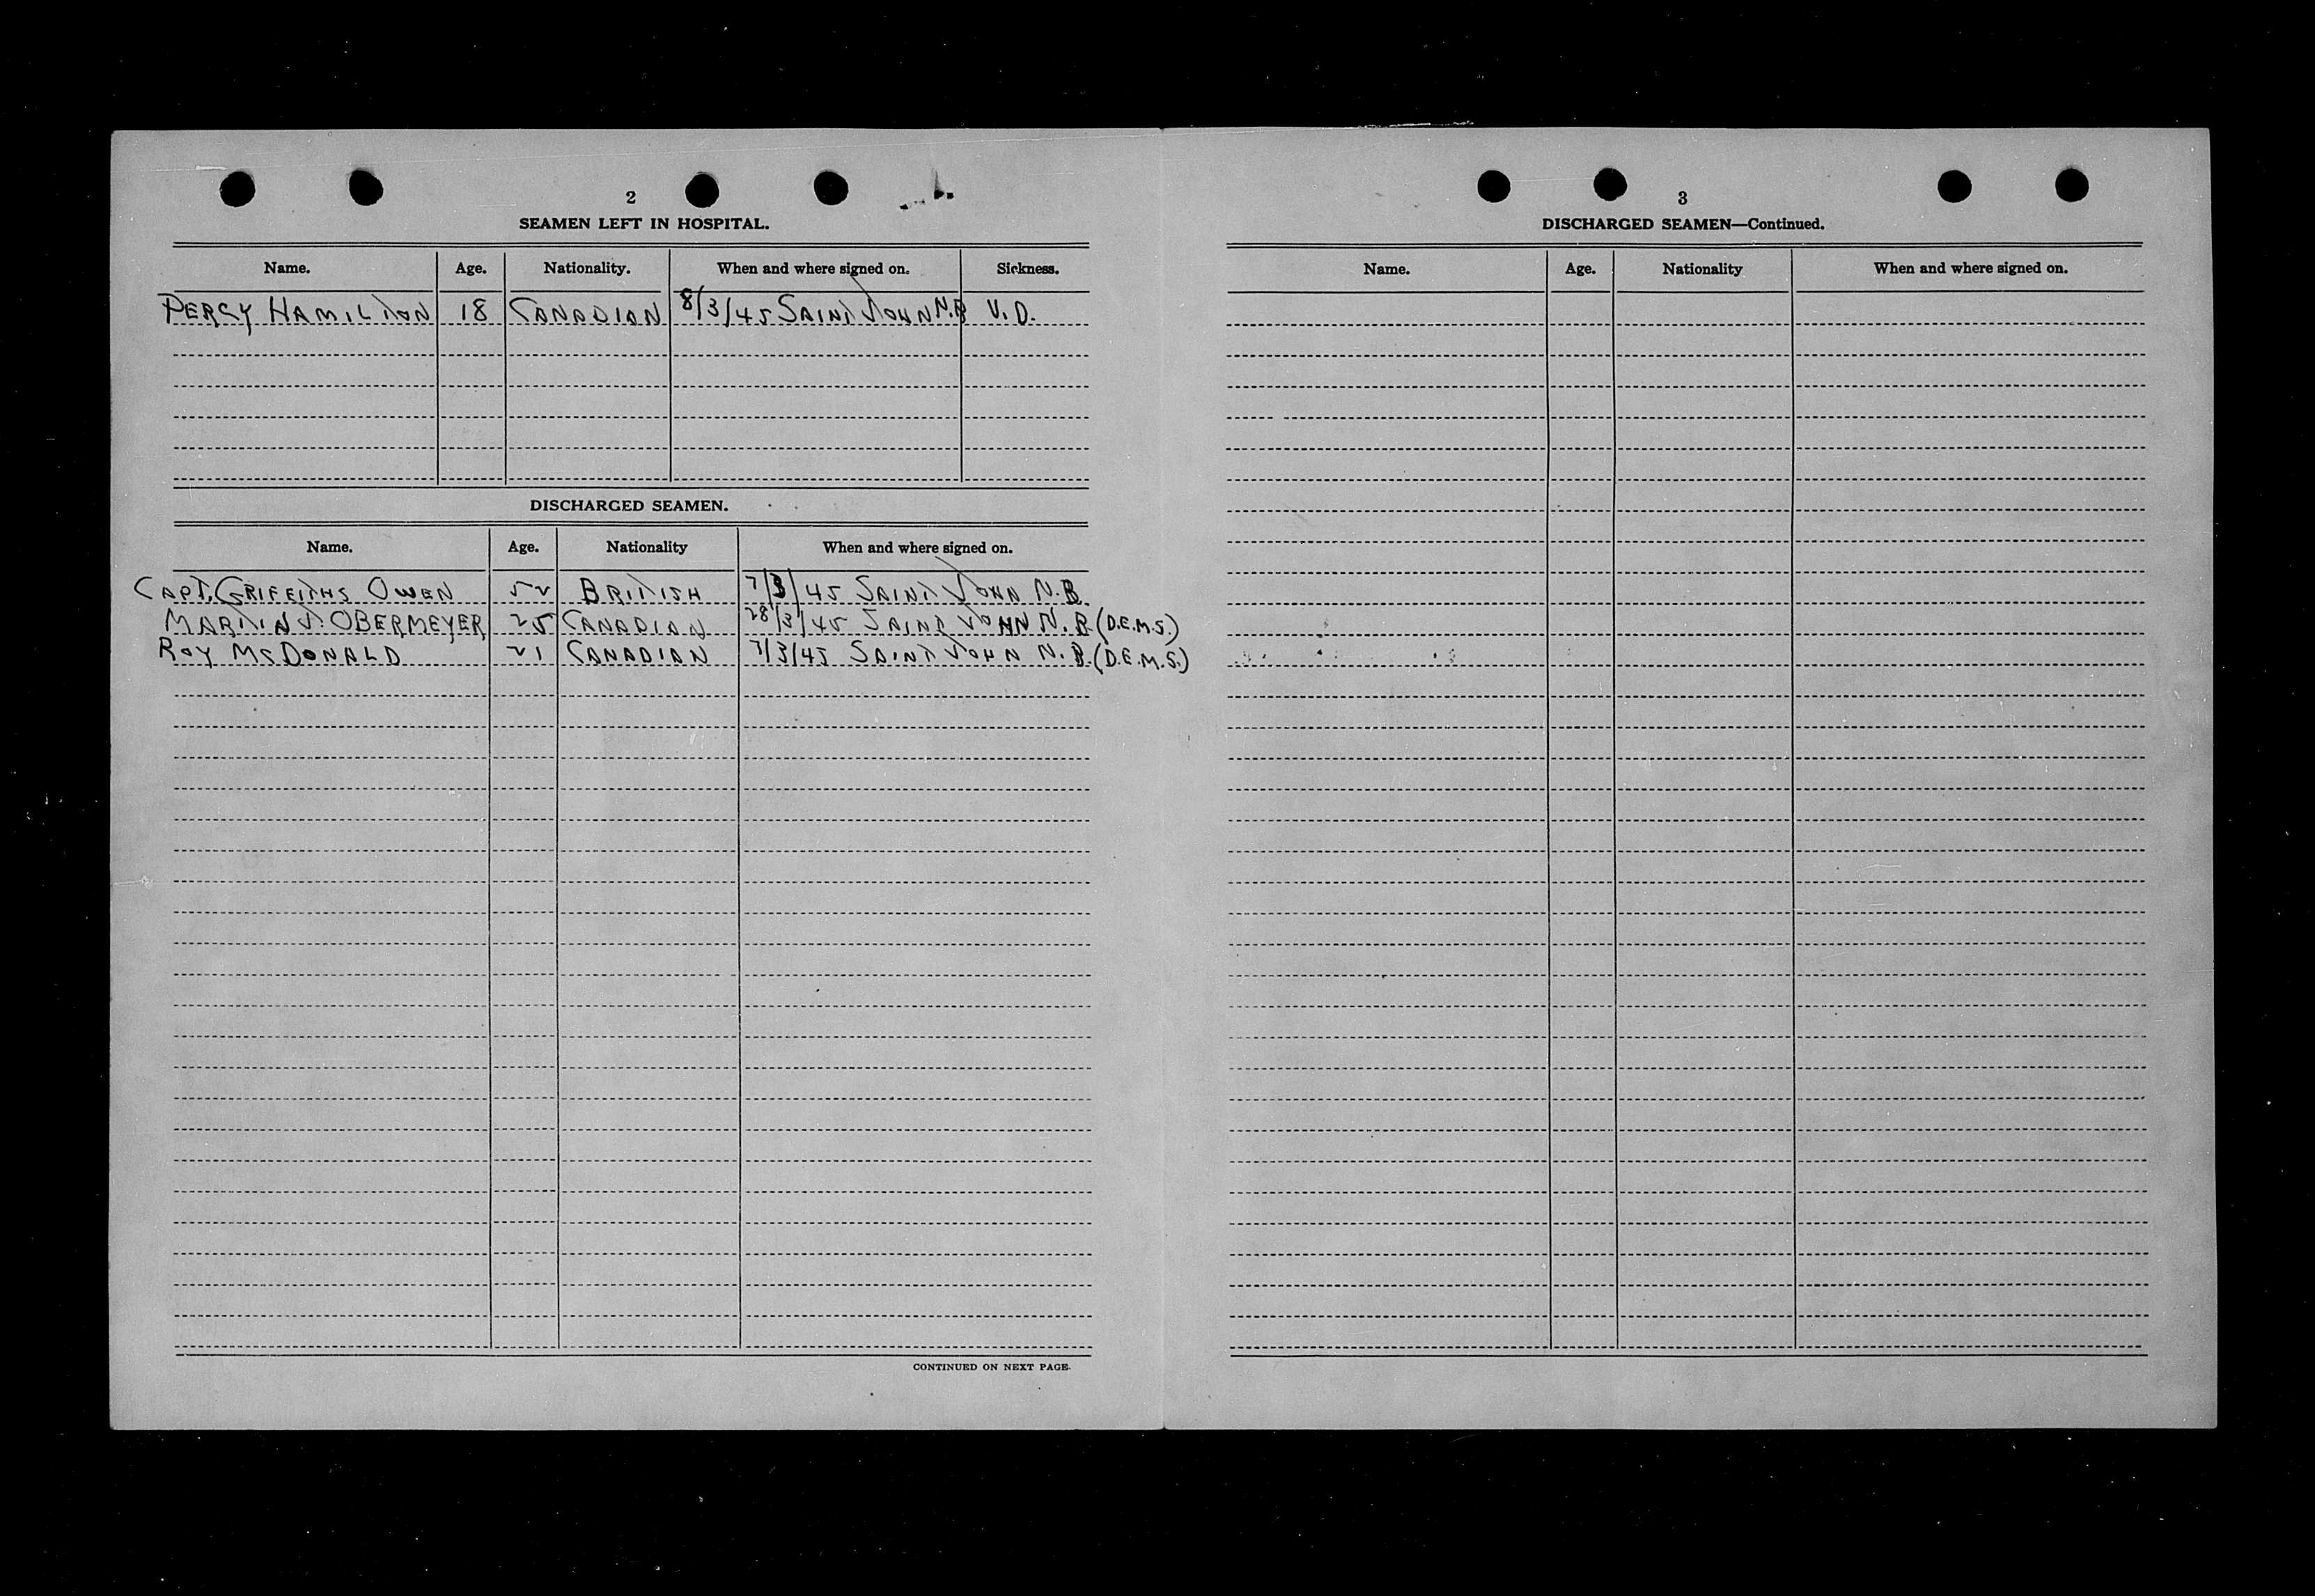 2
SEAMEN LEFT IN HOSPITAL.
Name. Age. Nationality. When and where signed on. Sickness.
PERCY HAMILTON 18 CANADIAN 8/3/45 SAINT JOHN N.B V.D.
DISCHARGED SEAMEN.
Name. Age. Nationality When and where signed on.
CAPT. GRIFFITHS OWEN 52 BRITISH 7/3/45 SAINT JOHN N.B.
MARTIN J. OBERMEYER 25 CANADIAN 28/3/45 SAINT JOHN N.B (D.E.M.S.)
ROY McDONALD 21 CANADIAN 7/3/45 SAINT JOHN N.B. (D.E.M.S.)
CONTINUED ON NEXT PAGE.
3
DISCHARGED SEAMEN—Continued.
Name. Age. Nationality When and where signed on.